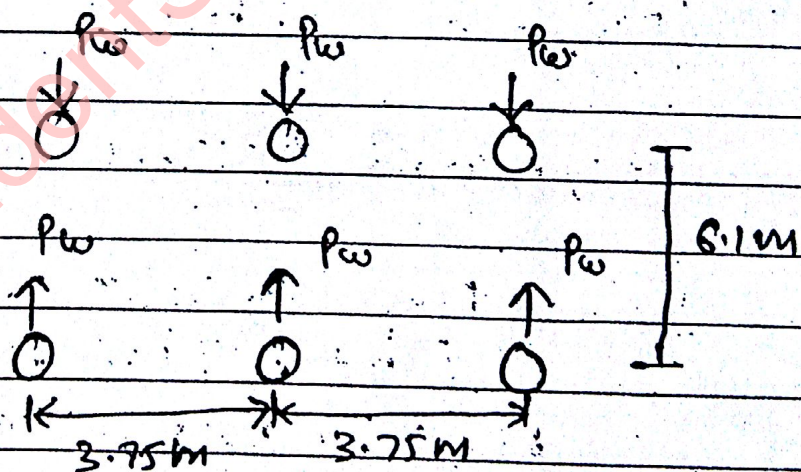 Pw Pw Pw
Pw Pw Pw
6.1m
3.75m 3.75m